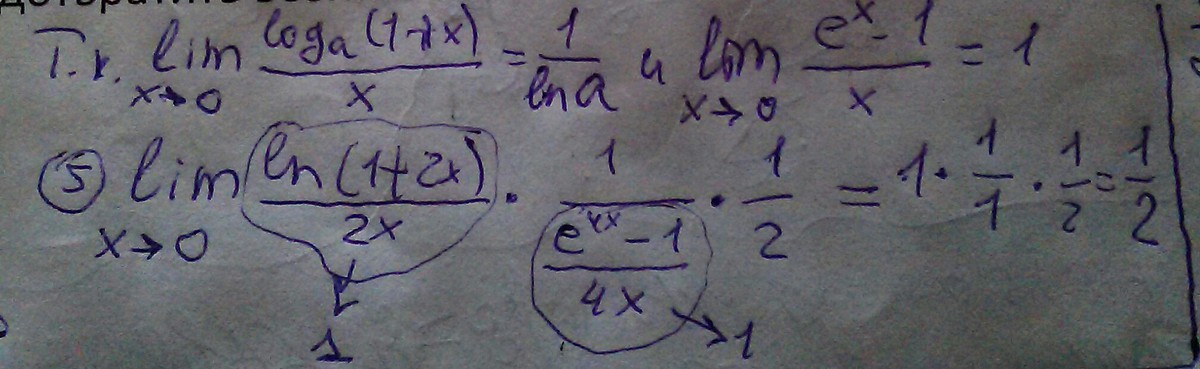 Т.к. lim x→0 log_a(1+x)/x = 1/ln a и lim x→0 (e^x - 1)/x = 1
⑤ lim x→0 ln(1+2x)/2x · 1/((e^{4x} - 1)/4x) · 1/2 = 1 · 1/1 · 1/2 = 1/2
1 → 1